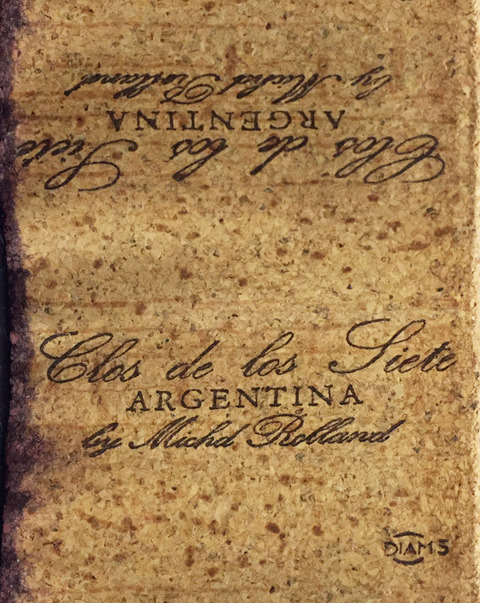 Clos de los Siete
ARGENTINA
by Michel Rolland
Clos de los Siete
ARGENTINA
by Michel Rolland
DIAM 5